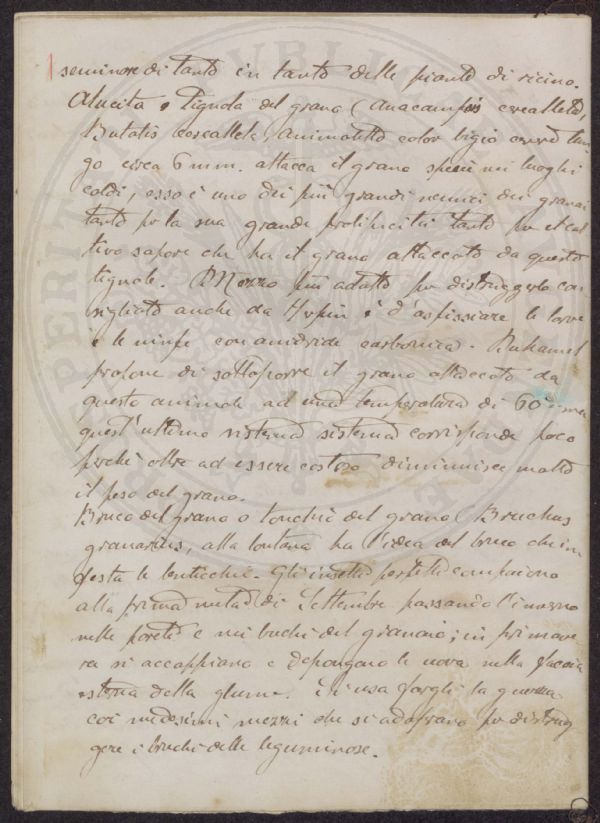 seminare di tanto in tanto delle piante di ricino.
Alucita o Tignola del grano (Anacampsis cerealleta,
Butalis cerealleta, animaletto color bigio cenere lun
go circa 6 mm. attacca il grano specie nei luoghi
caldi, esso è uno dei più grandi nemici dei granai
tanto per la sua grande prolificità tanto per il cat
tivo sapore che ha il grano attaccato da questa
tignola. Mezzo più adatto per distruggerlo con
sigliato anche da Herpin è d'asfissiare le larve
e le ninfe con anidride carbonica. Duhamel
propone di sottoporre il grano attaccato da
questo animale ad una temperatura di 60°
quest'ultimo sistema sistema corrisponde poco
perchè oltre ad essere costoso diminuisce molto
il peso del grano.
Bruco del grano o tonchio del grano (Bruchus
granarius, alla lontana ha l'idea del bruco che in
festa le lenticchie. Gli insetti perfetti compaiono
alla prima metà di Settembre passando l'inverno
nelle pareti e nei buchi del granaio; in primave
ra si accoppiano e depongano le uova nella faccia
esterna delle glume. Si usa fargli la guerra
coi medesimi mezzi che si adoprano per distrug
gere i bruchi delle leguminose.
PVBLICA
PERITALI